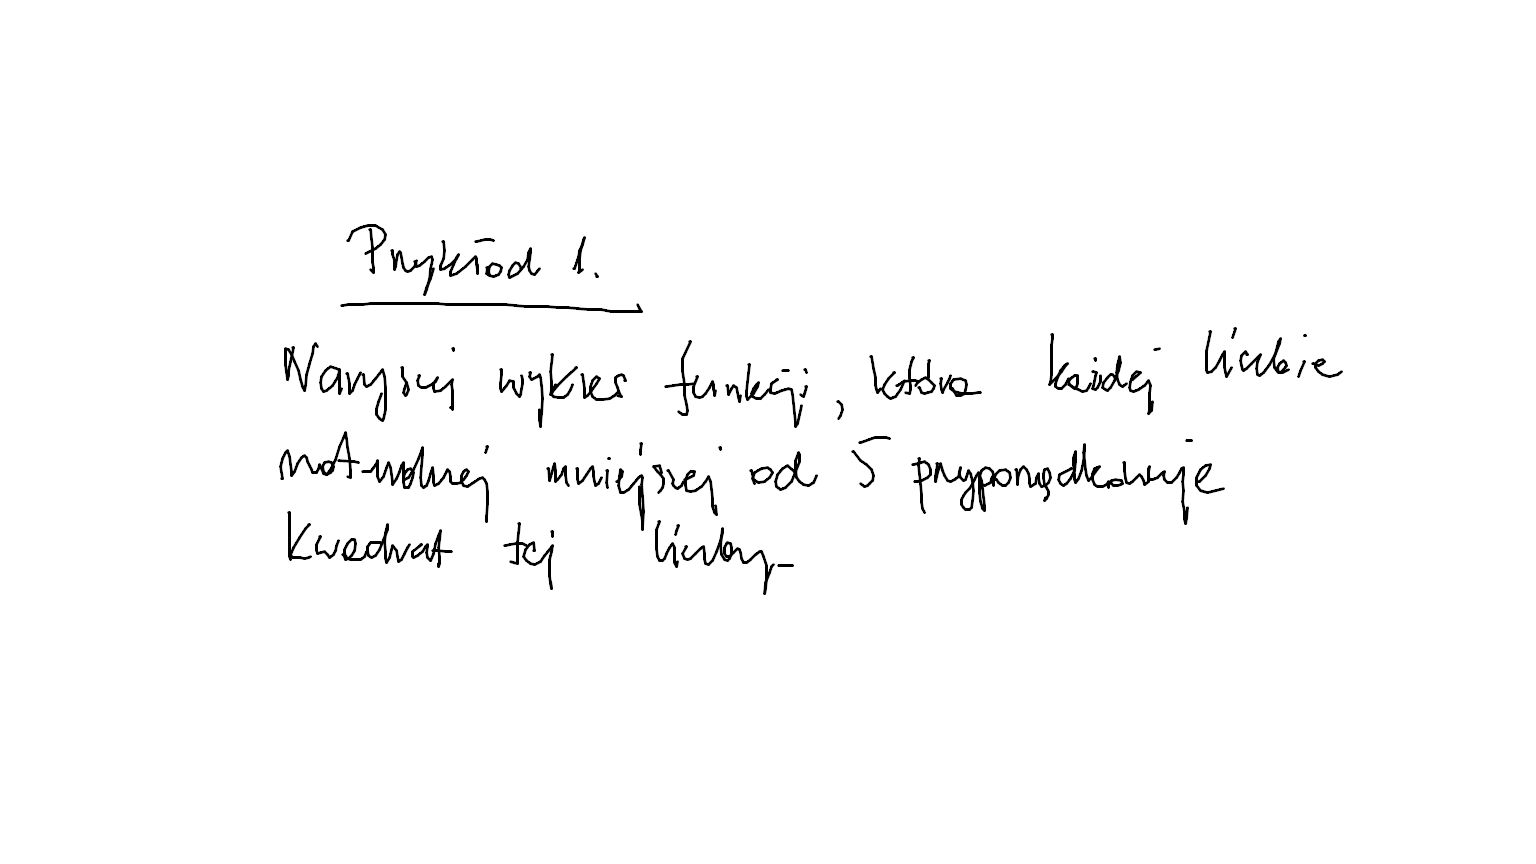 Przykład 1.
Narysuj wykres funkcji, która każdej liczbie
naturalnej mniejszej od 5 przyporządkowuje
kwadrat tej liczby.